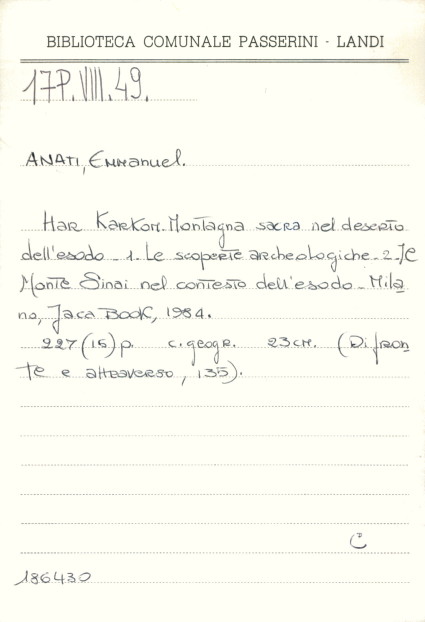 BIBLIOTECA COMUNALE PASSERINI - LANDI
17P.VIII.49.
ANATI, Emmanuel.
Har Karkom. Montagna sacra nel deserto
dell'esodo - 1. Le scoperte archeologiche - 2. Il
Monte Sinai nel contesto dell'esodo - Mila
no, Jaca Book, 1984.
227 (15) p. c. geogr. 23 cm. (Di fron
te e attraverso, 135).
C
186430